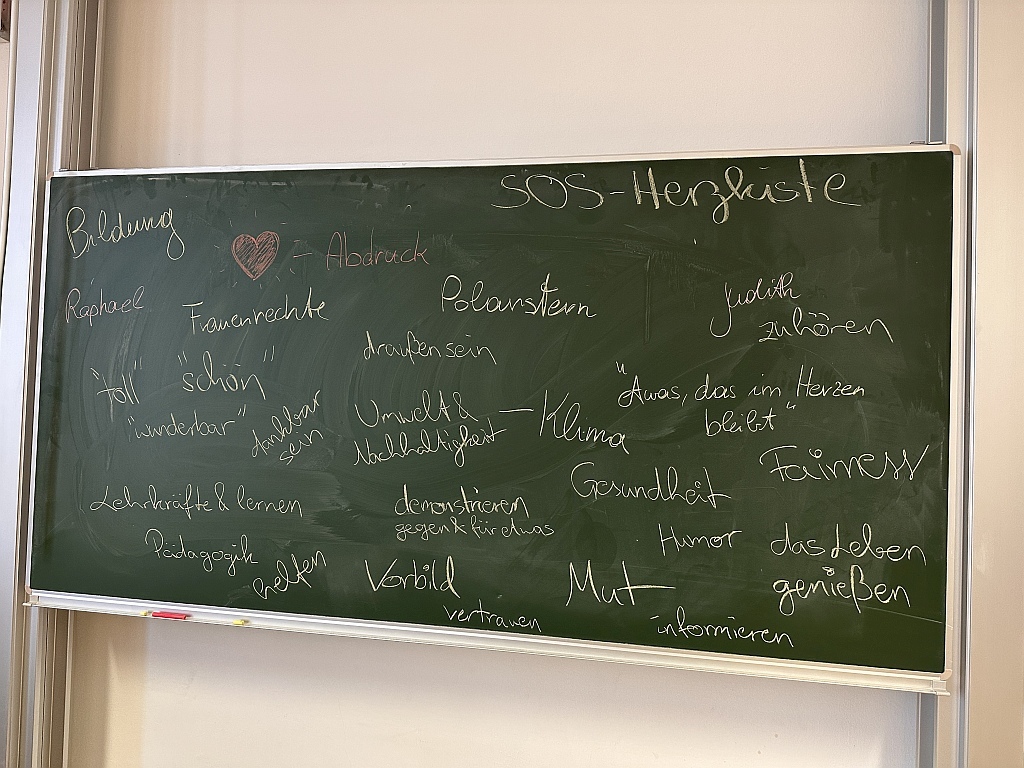 SOS-Herzkiste
Bildung
- Abdruck
Raphael
Frauenrechte
Polarstern
Judith
zuhören
draußen sein
"toll"
"schön"
"wunderbar"
dankbar
sein
Umwelt &
Nachhaltigkeit
- Klima
"Etwas, das im Herzen
bleibt"
Fairness
Gesundheit
Lehrkräfte & lernen
demonstrieren
gegen & für etwas
Humor
das Leben
genießen
Pädagogik
helfen
Vorbild
Mut
vertrauen
informieren